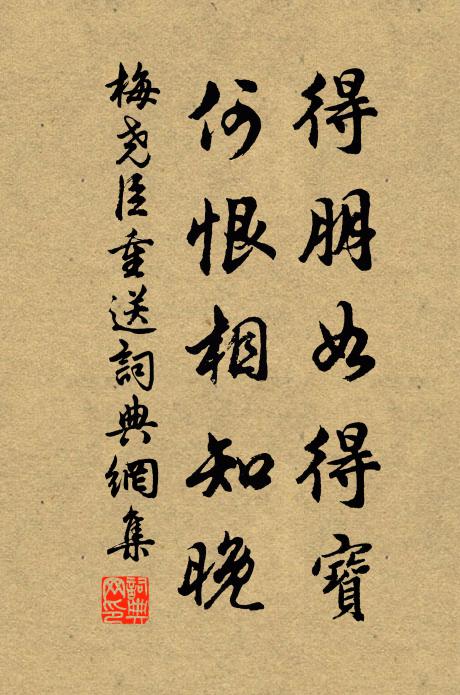 得朋如得寶
何恨相知晚
梅尧臣重送詞典網集
詞典网印